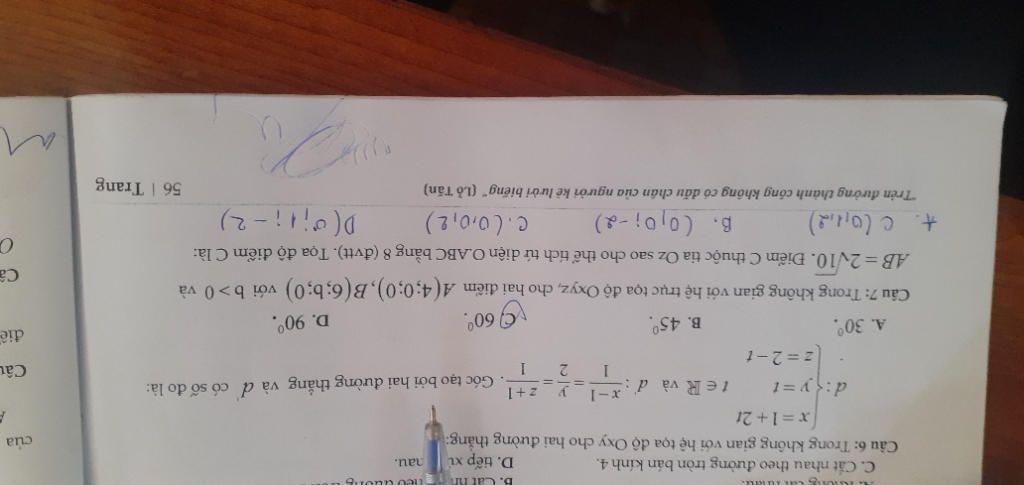 B. Cắt nh
C. Cắt nhau theo đường tròn bán kính 4. D. tiếp xú nau.
Câu 6: Trong không gian với hệ tọa độ Oxy cho hai đường thẳng:
d: { x = 1 + 2t
y = t
z = 2 − t t ∈ ℝ và d': (x−1)/1 = y/2 = (z+1)/1. Góc tạo bởi hai đường thẳng và d' có số đo là:
A. 30⁰. B. 45⁰. C. 60⁰. D. 90⁰.
Câu 7: Trong không gian với hệ trục tọa độ Oxyz, cho hai điểm A(4;0;0), B(6;b;0) với b > 0 và
AB = 2√10. Điểm C thuộc tia Oz sao cho thể tích tứ diện O.ABC bằng 8 (đvtt). Tọa độ điểm C là:
A. C(0,1,2) B. (0,0;-2) C. (0,0,2) D(0;1;-2)
"Trên đường thành công không có dấu chân của người kẻ lười biếng" (Lỗ Tấn) 56 | Trang
của
Câu
điể
Câ